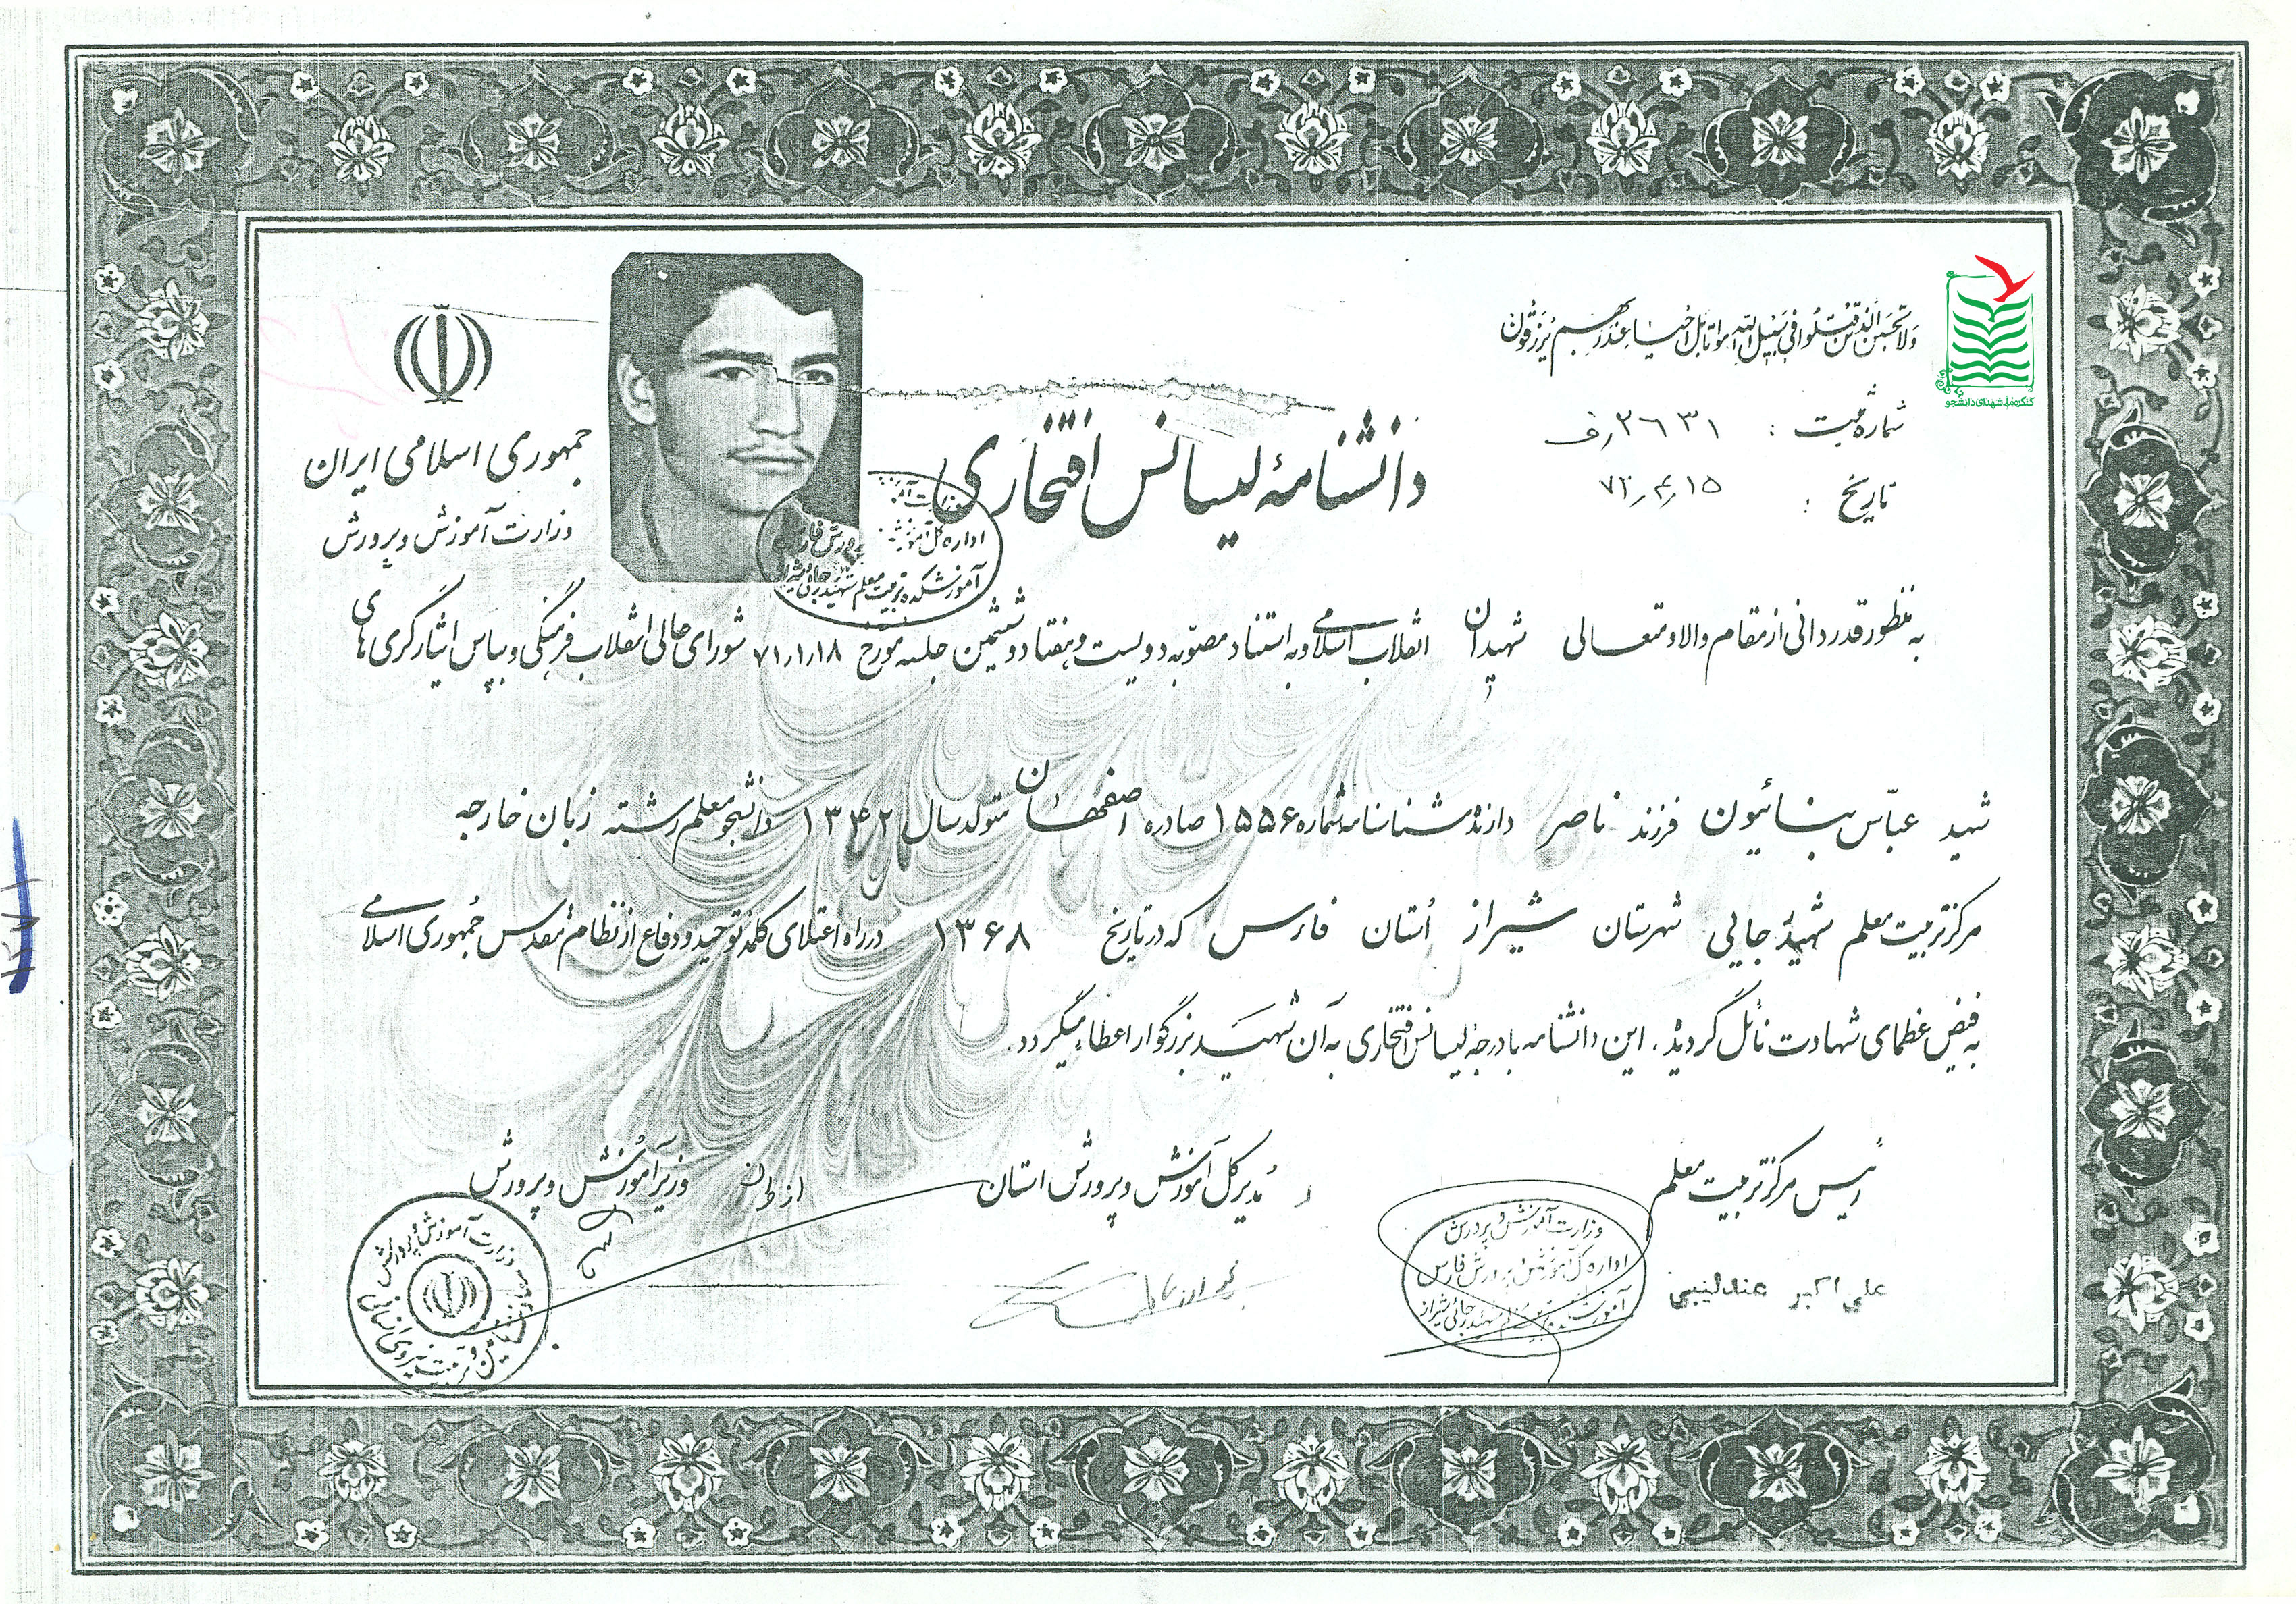 ولا تحسبن الذین قتلوا فی سبیل الله امواتا بل احیاء عند ربهم یرزقون
کنگره ملی شهدای دانشجو
شماره ثبت : ۲۶۳۱ رف
تاریخ : ۷۲٫۴٫۱۵
جمهوری اسلامی ایران
وزارت آموزش و پرورش
دانشنامهٔ لیسانس افتخاری
اداره کل آموزش و پرورش فارس
آموزشکده تربیت معلم شهید رجائی شیراز
به منظور قدردانی از مقام والا و متعالی شهیدان انقلاب اسلامی و به استناد مصوبه دویست و هفتاد و ششمین جلسه مورخ ۷۱٫۱٫۱۸ شورای عالی انقلاب فرهنگی و بپاس ایثارگری های
شهید عباس بنائیون فرزند ناصر دارنده شناسنامه شماره ۱۵۵۶ صادره اصفهان متولد سال ۱۳۴۲ دانشجو معلم رشته زبان خارجه
مرکز تربیت معلم شهید رجایی شهرستان شیراز اُستان فارس که در تاریخ ۱۳۶۸ در راه اعتلای کلمه توحید و دفاع از نظام مقدس جمهوری اسلامی
به فیض عظمای شهادت نائل گردید. این دانشنامه با درجه لیسانس افتخاری به آن شهید بزرگوار اعطاء میگردد.
رئیس مرکز تربیت معلم
مدیر کل آموزش و پرورش استان
از طرف وزیر آموزش و پرورش
علی اکبر عندلیبی
وزارت آموزش و پرورش
اداره کل آموزش و پرورش فارس
آموزشکده تربیت معلم شهید رجائی شیراز
وزارت آموزش و پرورش